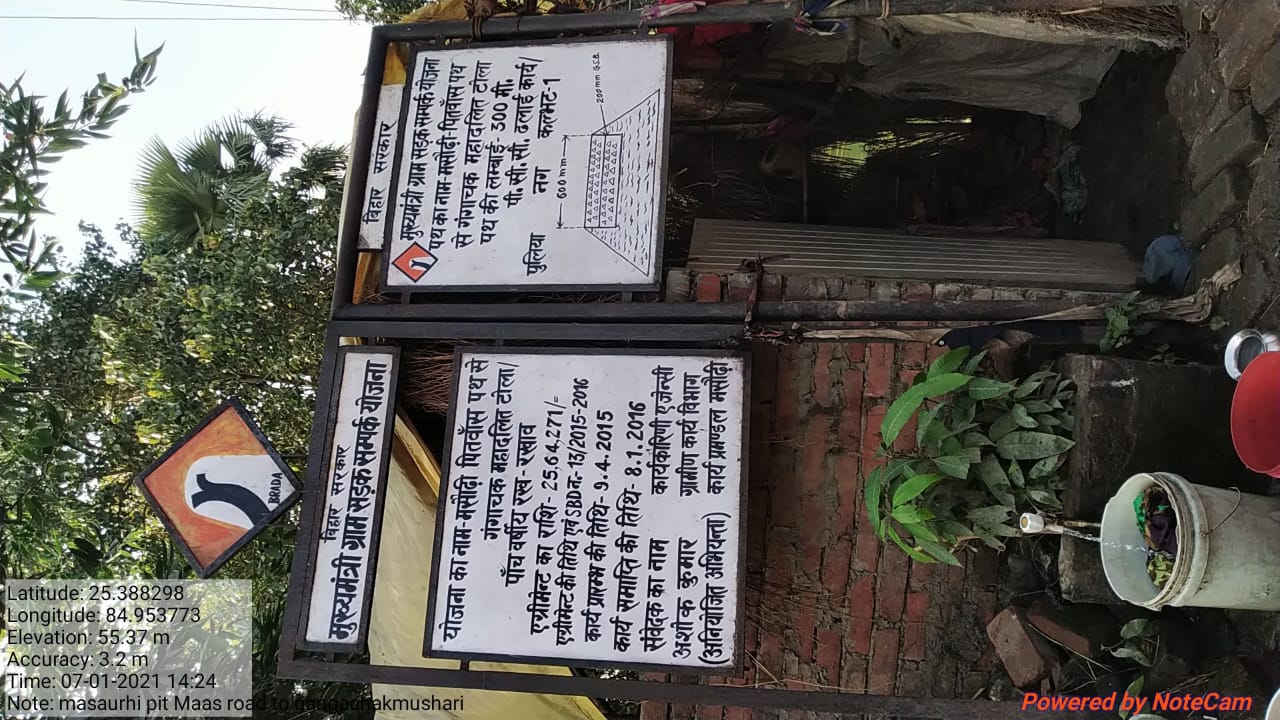 BRADA
बिहार सरकार
मुख्यमंत्री ग्राम सड़क सम्पर्क योजना
योजना का नाम-मसौढ़ी पितवाँस पथ से
गंगाचक महादलित टोला/
पाँच वर्षीय रख-रखाव
एग्रीमेन्ट का राशि- 25,64,271/=
एग्रीमेन्ट की तिथि एवं SBD नं.-13/2015-2016
कार्य प्रारम्भ की तिथि-9.4.2015
कार्य समाप्ति की तिथि-8.1.2016
संवेदक का नाम कार्यकारिणी एजेन्सी
अशोक कुमार ग्रामीण कार्य विभाग
(अनियोजित अभियन्ता) कार्य प्रमण्डल मसौढ़ी
बिहार सरकार
मुख्यमंत्री ग्राम सड़क सम्पर्क योजना
पथ का नाम-मसौढ़ी-पितवाँस पथ
से गंगाचक महादलित टोला
पथ की लम्बाई- 300 मी.
पी. सी. सी. ढलाई कार्य/
पुलिया नग कल्भट-1
600 mm
200 mm G.S.B.
Latitude: 25.388298
Longitude: 84.953773
Elevation: 55.37 m
Accuracy: 3.2 m
Time: 07-01-2021 14:24
Note: masaurhi pit Maas road to gangachakmushari
Powered by NoteCam